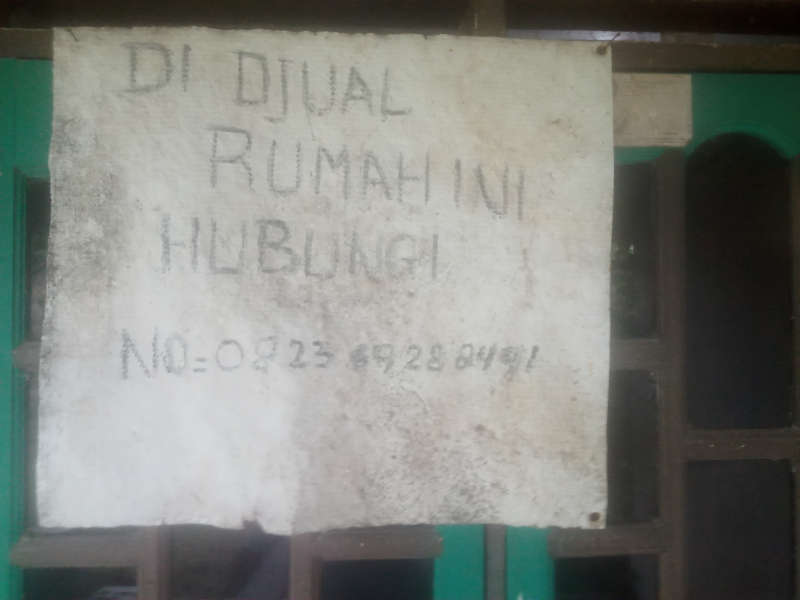 DI DJUAL
RUMAH INI
HUBUNGI
NO=0823 6928 2491